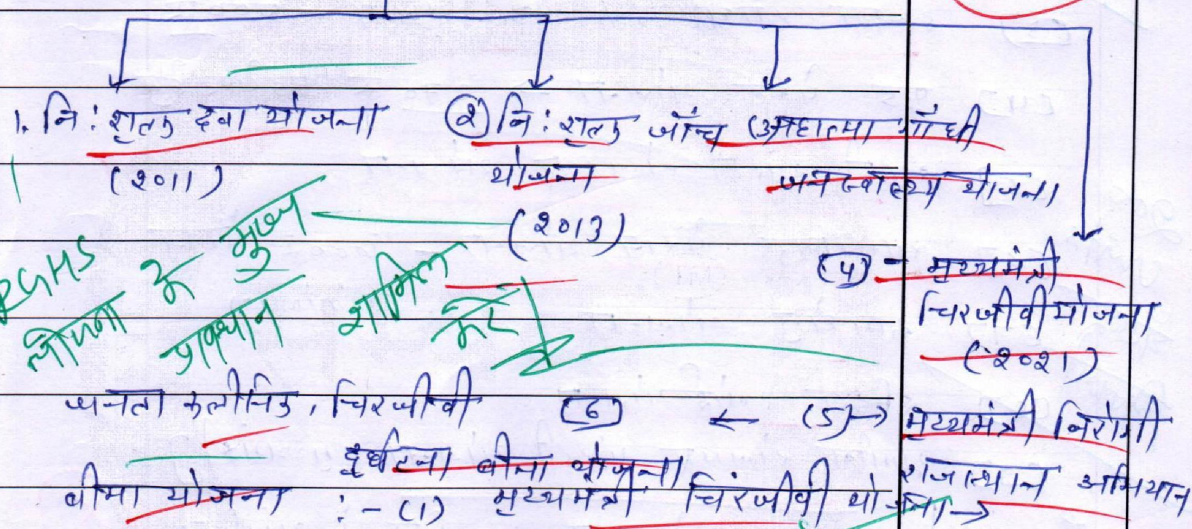 1. नि: शुल्क दवा योजना
(2011)
② नि: शुल्क जाँच
योजना
(2013)
महात्मा गाँधी
जनस्वास्थ्य योजना
(4) - मुख्यमंत्री
चिरंजीवी योजना
(2021)
RGHS
योजना के मुख्य
प्रावधान शामिल
करें
जनता क्लीनिक, चिरंजीवी (6) ← (5) → मुख्यमंत्री निरोगी
दुर्घटना बीमा योजना राजस्थान अभियान
बीमा योजना : - (1) मुख्यमंत्री चिरंजीवी यो